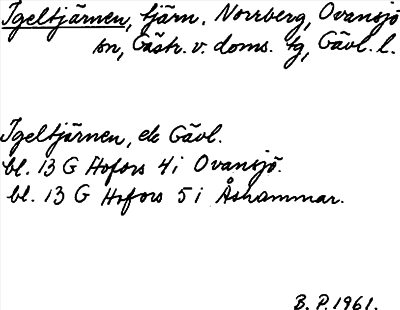 Igeltjärnen, tjärn. Norrberg, Ovansjö
sn, Gästr. v. doms. tg, Gävl. l.
Igeltjärnen, ek Gävl.
bl. 13 G Hofors 4 i Ovansjö.
bl. 13 G Hofors 5 i Åshammar.
B. P. 1961.